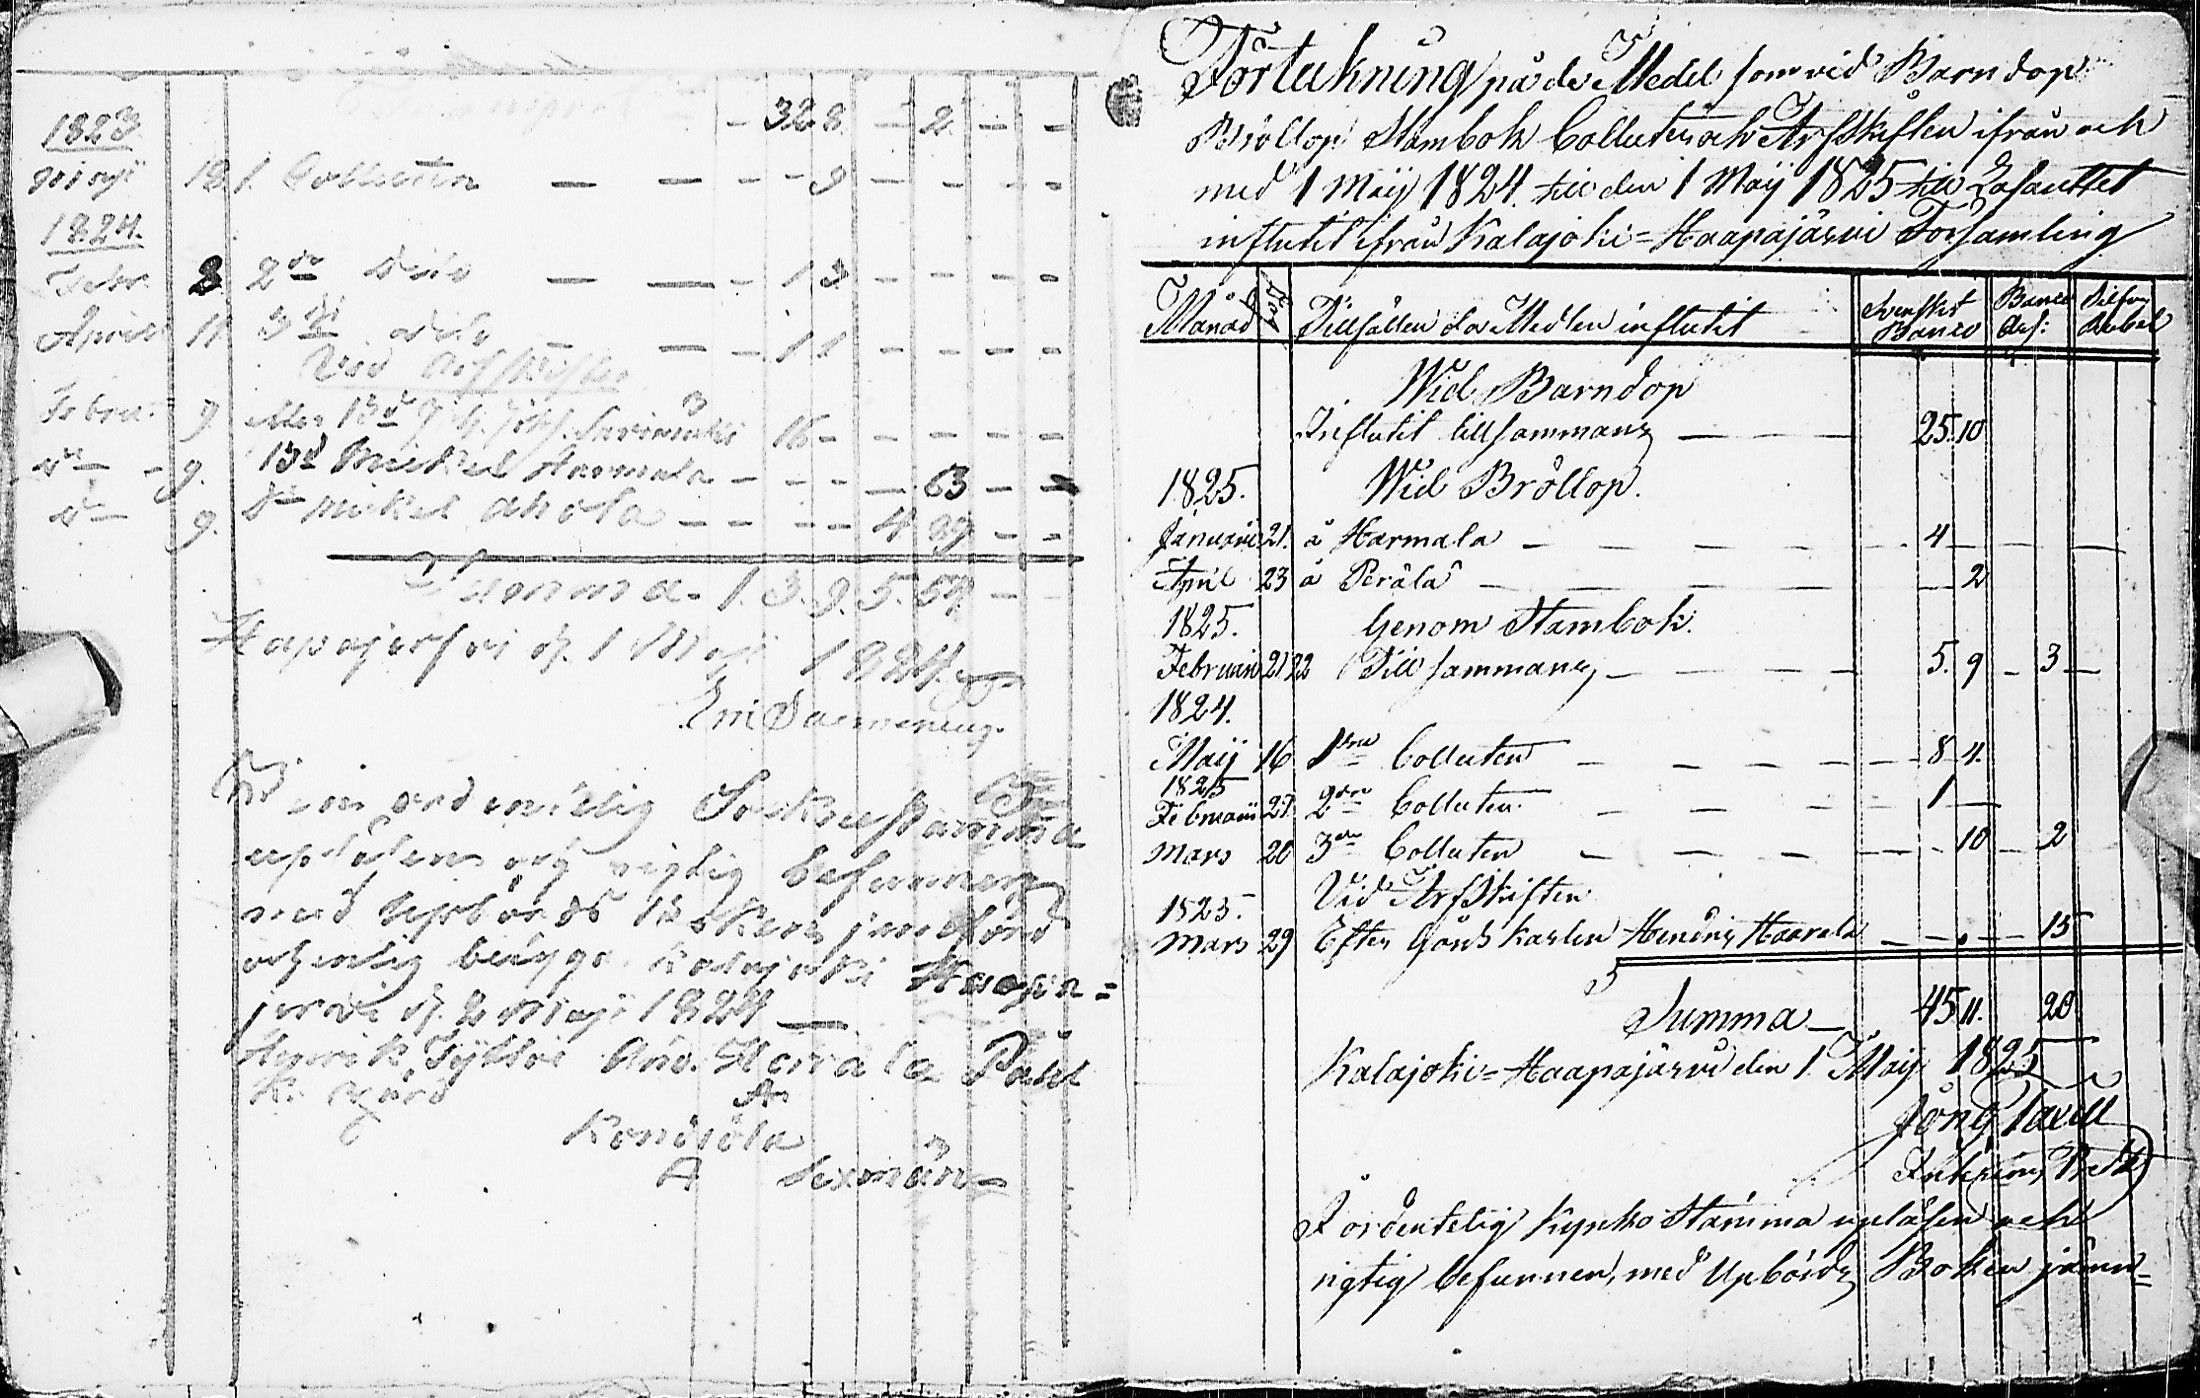 1823
Maji 18 1. Collecten — — - - 9 — - - -
328. — 2. — —
1824.
Febr. 8 2de Dito — — - 13 - - - -
Aprill 11 3de dito — — - 11 - - - -
Vid Arfskifte
Februa: 9 16 - - - - -
do - 9. Bd Mickel Harmala - - - - 63 - -
do - 9. Do Mickel Ahola - - - - 4 29 - -
Summa. 1.3.9.5.59. -
Hapajerfvi d. 1 Maji 1824.
Eric
Vid en ordentelig Sockne Stämma
upläsen och rigtig befunnen
med Upbörds Boken jemförd
Kalajoki Haapa=
jervi d. 2 Maji 1824 —
Henrik And. Harala Påhl
Konisola
A Sexmän
Förtekning på de Medel som vid Barndop
Bröllop Stambok Collecter och Arfskiften ifrån och
med 1 Maij 1824. till den 1 Maij 1825 till Lasarettet
influtit ifrån Kalajoki=Haapajärvi Församling
Månad Tillfällen då Medlen influtit Svenskt Banco Banco Ass: Silfver Rubel
Wid Barndop
Influtit tillsammans — — 25.10
1825. Wid Bröllop.
Januarii 21. å Harmala — — — — 4 — — —
April 23 å Peräla — — — — — 2
1825. Genom Stambok.
Februarii 21 22 Till sammans, — — — 5. 9 - 3 —
1824.
Maij 16 1sta Collecten — — — — 8 4.
1825
Februarii 27. 2dra Collecten. — — — — 1 —
Mars 20 3die Collecten — — — — 10 — 2
1825. Vid Arfskiften
Mars 29 Efter Hendric Haarala — — — 15
Summa — 45 11. 20.
Kalajoki=Haapajärvi den 1 Maij 1825
I ordentelig Kyrko Stämma upläsen och
rigtig befunnen, med Upbörds Boken jämn=